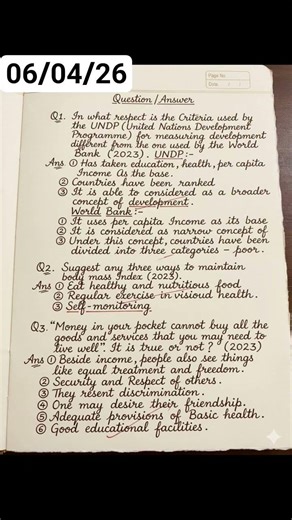 06/04/26
Page No.
Date
Question / Answer
Q1. In what respect is the Criteria used by
the UNDP (United Nations Development
Programme) for measuring development
different from the one used by the World
Bank (2023). UNDP:-
Ans ① Has taken education, health, per capita
Income As the base.
② Countries have been ranked
③ It is able to considered as a broader
concept of development.
World Bank:-
① It uses per capita Income as its base
② It is considered as narrow concept of
③ Under this concept, countries have been
divided into three categories – poor.
Q2. Suggest any three ways to maintain
body mass Index (2023).
Ans ① Eat healthy and nutritious food
② Regular exercise in visioud health.
③ Self-monitoring.
Q3. "Money in your pocket cannot buy all the
goods and services that you may need to
live well". It is true or not? (2023)
Ans ① Beside income, people also see things
like equal treatment and freedom.
② Security and Respect of others.
③ They resent discrimination.
④ One may desire their friendship.
⑤ Adequate provisions of Basic health.
⑥ Good educational facilities.